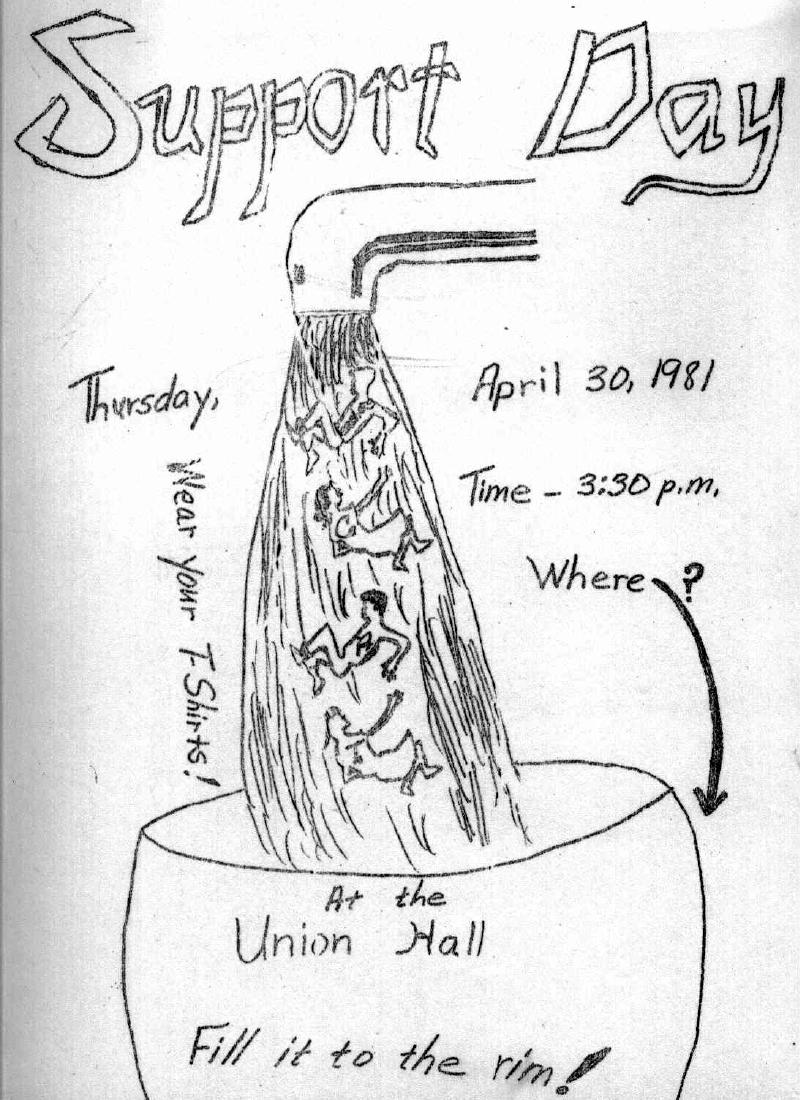 Support Day
Thursday,
April 30, 1981
Wear your T-Shirts!
Time - 3:30 p.m.
Where ?
At the
Union Hall
Fill it to the rim!